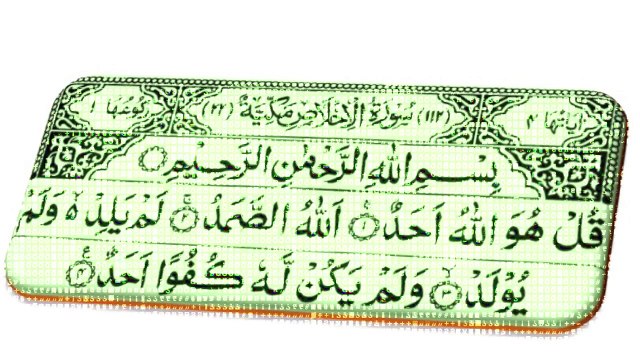 اٰيَاتُهَا ۴ (۱۱۲) سُوْرَةُ الْاِخْلَاصِ مَكِّيَّةٌ (۲۲) رُكُوْعُهَا ۱
بِسْمِ اللهِ الرَّحْمٰنِ الرَّحِيْمِ
قُلْ هُوَ اللهُ اَحَدٌ ۱ اَللهُ الصَّمَدُ ۲ لَمْ يَلِدْ ۙ وَلَمْ
يُوْلَدْ ۳ وَلَمْ يَكُنْ لَّهٗ كُفُوًا اَحَدٌ ۴